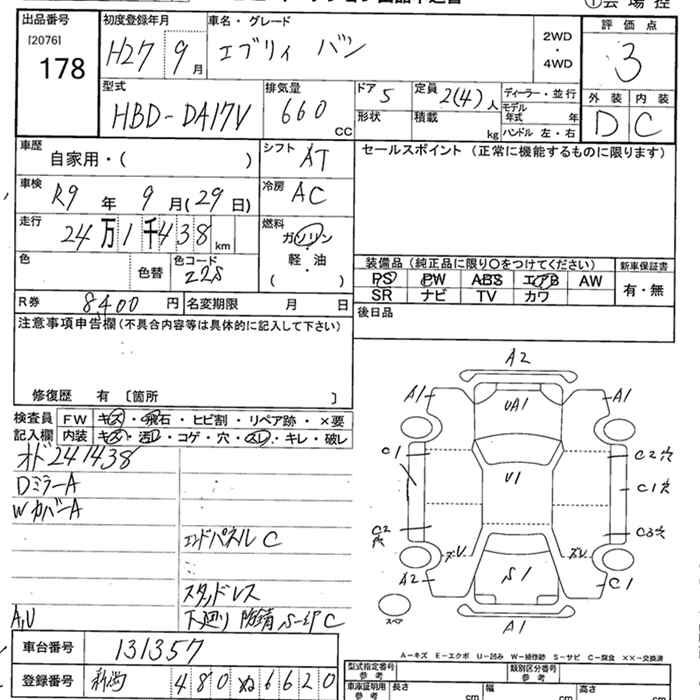 ①会場控
出品番号 初度登録年月 車名・グレード 2WD・4WD 評価点
[2076] 178 H27 9月 エブリィ バン 3
型式 排気量 ドア 5 定員 2(4)人 ディーラー・並行 外装 内装
HBD-DA17V 660 CC 形状 積載 kg モデル年式 年 ハンドル 左・右 D C
車歴 自家用・( ) シフト AT セールスポイント (正常に機能するものに限ります)
車検 R9年 9月(29日) 冷房 AC
走行 24万1千438km 燃料 ガソリン・軽・油 ( )
色 色替 色コード Z2S
装備品(純正品に限り〇をつけてください) 新車保証書
PS PW ABS エアB AW 有・無
SR ナビ TV カワ
R券 8400円 名変期限 月 日 後日品
注意事項申告欄(不具合内容等は具体的に記入して下さい)
修復歴 有 〔箇所 〕
検査員 FW キズ・飛石・ヒビ割・リペア跡・×要
記入欄 内装 キズ・汚レ・コゲ・穴・スレ・キレ・破レ
オド241438
DミラーA
WカバーA
エンドパネルC
スタッドレス
A,U 下廻り 防錆
A2
A1 UA1 A1
C1 U1 C2穴
C1穴
C2穴 C3穴
ズU ズU
A2 S1 C1
スペア A1
A-キズ E-エクボ U-凹み W-補修跡 S-サビ C-腐食 ××-交換済
車台番号 131357
登録番号 新潟 480 ぬ 6620
型式指定番号 参考 類別区分番号 参考
車庫証明用 参考 長さ cm 幅 cm 高さ cm